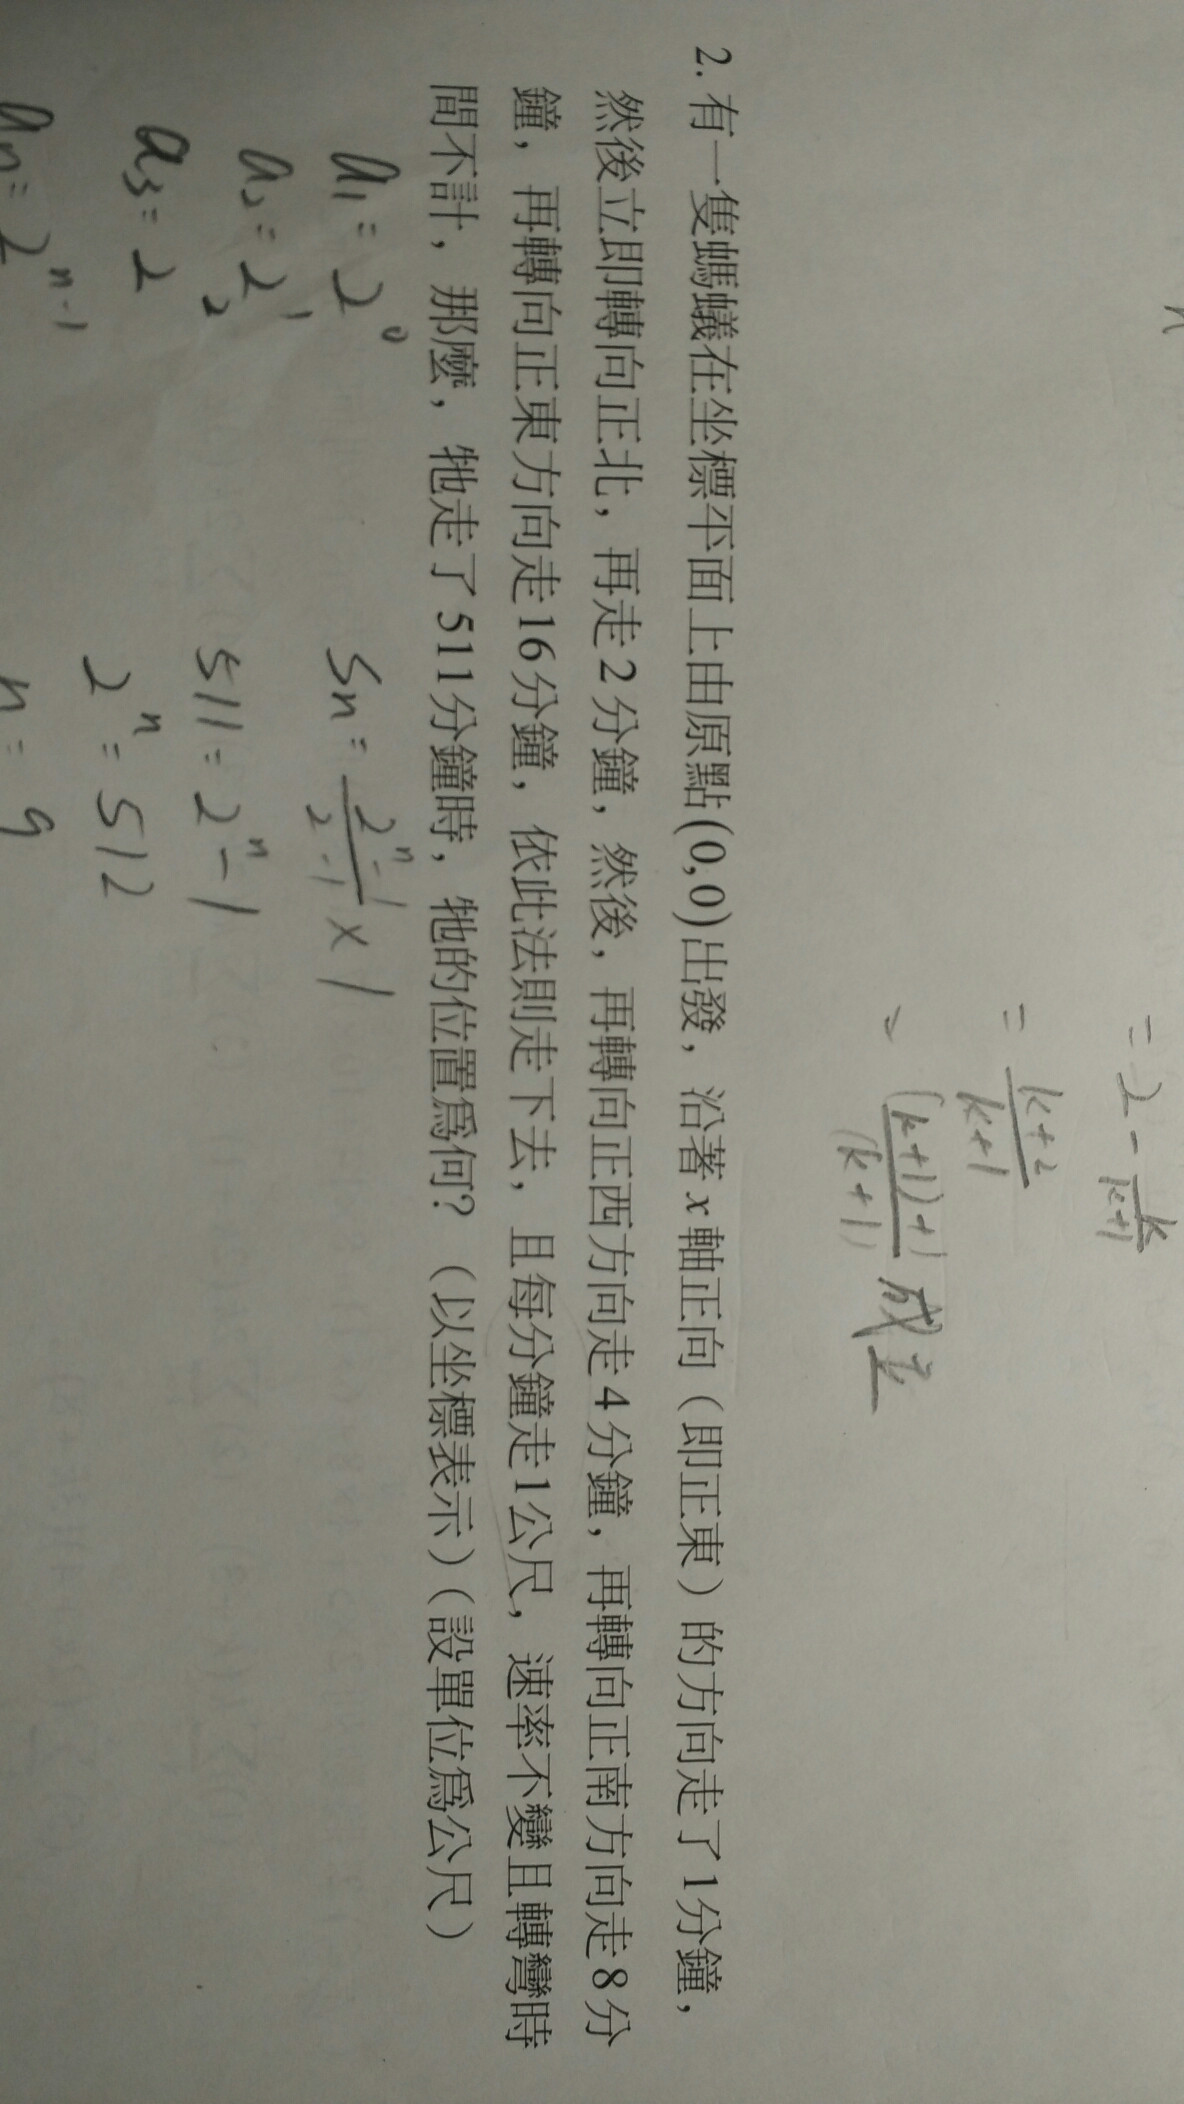 n
= 2 - \frac{k}{k+1}
= \frac{k+2}{k+1}
\frac{(k+1)+1}{(k+1)} 成立
2. 有一隻螞蟻在坐標平面上由原點(0,0)出發，沿著x軸正向（即正東）的方向走了1分鐘，
然後立即轉向正北，再走2分鐘，然後，再轉向正西方向走4分鐘，再轉向正南方向走8分
鐘，再轉向正東方向走16分鐘，依此法則走下去，且每分鐘走1公尺，速率不變且轉彎時
間不計，那麼，牠走了511分鐘時，牠的位置爲何？（以坐標表示）（設單位爲公尺）
a₁ = 2⁰
a₂ = 2¹
a₃ = 2²
aₙ = 2ⁿ⁻¹
Sn = \frac{2ⁿ-1}{2-1} × 1
511 = 2ⁿ - 1
2ⁿ = 512
n = 9